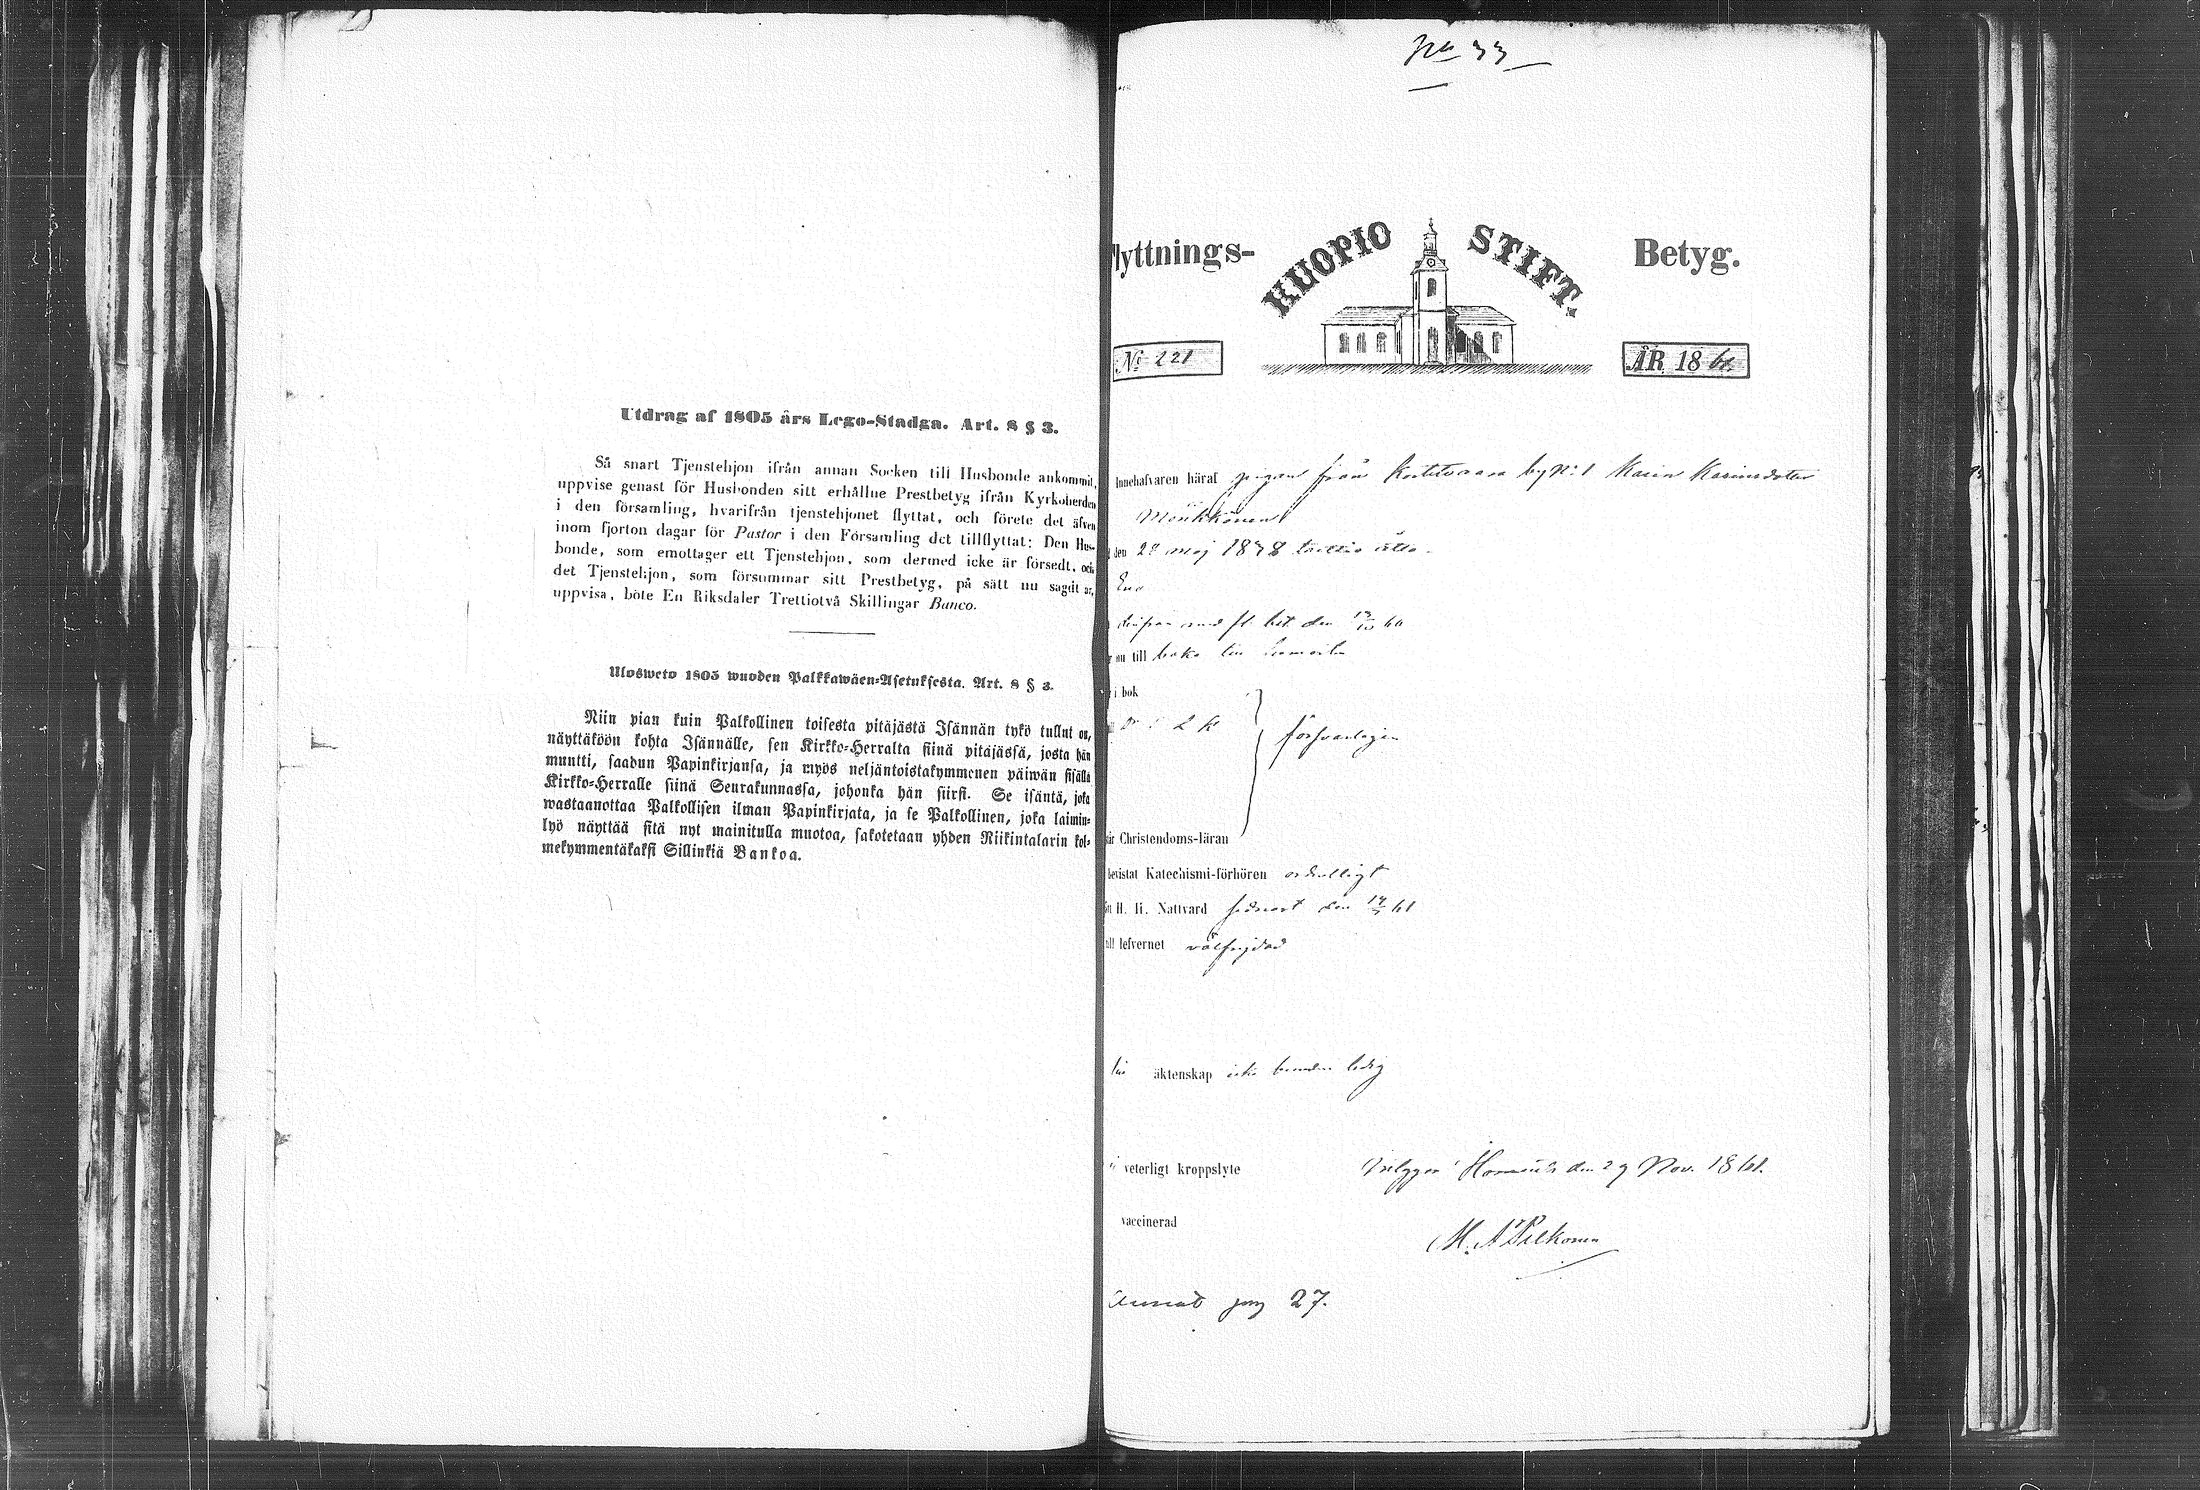 Utdrag af 1805 års Lego-Stadga. Art. 8 § 3.
Så snart Tjenstehjon ifrån annan Socken till Husbonde ankommit,
uppvise genast för Husbonden sitt erhållne Prestbetyg ifrån Kyrkoherden
i den församling, hvarifrån tjenstehjonet flyttat, och förete det äfven
inom fjorton dagar för Pastor i den Församling det tillflyttat: Den Hus-
bonde, som emottager ett Tjenstehjon, som dermed icke är försedt, och
det Tjenstehjon, som försummar sitt Prestbetyg, på sätt nu sagdt är,
uppvisa, böte En Riksdaler Trettiotvå Skillingar Banco.
Ulosweto 1805 wuoden Palkkawäen-Asetuksesta. Art. 8 § 3.
Niin pian kuin Palkollinen toisesta pitäjästä Isännän tykö tullut on,
näyttäköön kohta Isännälle, sen Kirkko-Herralta siinä pitäjässä, josta hän
muutti, saadun Papinkirjansa, ja myös neljäntoistakymmenen päiwän sisällä
Kirkko-Herralle siinä Seurakunnassa, johonka hän siirsi. Se isäntä, joka
wastaanottaa Palkollisen ilman Papinkirjata, ja se Palkollinen, joka laimin-
lyö näyttää sitä nyt mainitulla muotoa, sakotetaan yhden Riikintalarin kol-
mekymmentäkaksi Sillinkiä Bankoa.
No 33
lyttnings- KUOPIO STIFT. Betyg.
No 121 ÅR 1861.
Innehafvaren häraf pigan från by No 1 Maria Karinsdotter
Mönkkönen
den 28 maj 1838 trettio åtta.
Eno
med fl. bet den 13/10 60
nu till
i bok
försvarligen
Christendoms-läran
bevistat Katechismi-förhören ordentligt
H. H. Nattvard sednast den 14/7 61
till lefvernet välfrejdad
äktenskap icke bunden ledig
veterligt kroppslyte
den 29 Nov. 1861.
vaccinerad
M. A. Pelkonen
Annat pag 27.